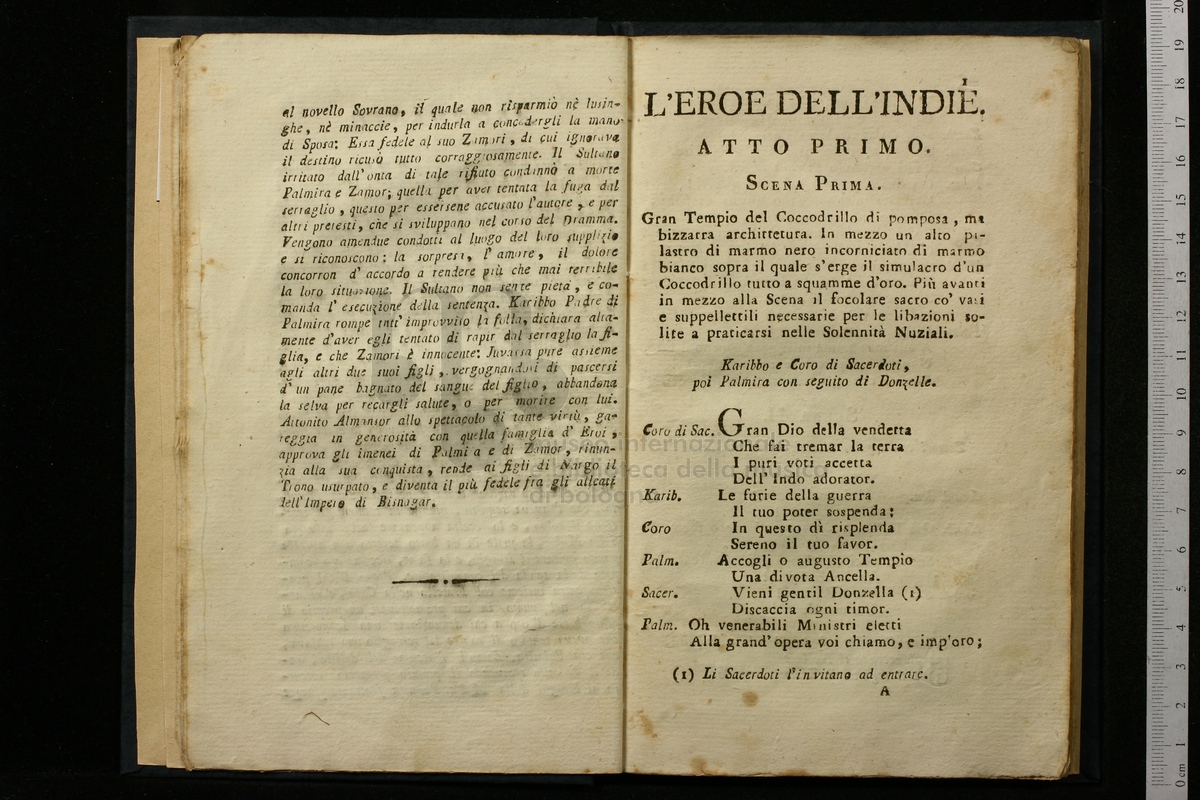 al novello Sovrano, il quale non risparmiò nè lusin-
ghe, nè minaccie, per indurla a concedergli la mano
di Sposa: Essa fedele al suo Zamori, di cui ignorava
il destino ricusò tutto corraggiosamente. Il Sultano
irritato dall'onta di tale rifiuto condannò a morte
Palmira e Zamor; quella per aver tentata la fuga dal
serraglio, questo per essersene accusato l'autore, e per
altri pretesti, che si sviluppano nel corso del Dramma.
Vengono amendue condotti al luogo del loro supplizio
e si riconoscono: la sorpresa, l'amore, il dolore
concorron d'accordo a rendere più che mai terribile
la loro situazione. Il Sultano non sente pietà, e co-
manda l'esecuzione della sentenza. Karibbo Padre di
Palmira rompe tutt' improvviso la folla, dichiara alta-
mente d'aver egli tentato di rapir dal serraglio la fi-
glia, e che Zamori è innocente: Juvassa pure assieme
agli altri due suoi figli, vergognandosi di pascersi
d'un pane bagnato del sangue del figlio, abbandona
la selva per recargli salute, o per morire con lui.
Attonito Almansor allo spettacolo di tante virtù, ga-
reggia in generosità con quella famiglia d'Eroi,
approva gli imenei di Palmira e di Zamor, rinun-
zia alla sua conquista, rende ai figli di Nargo il
Trono usurpato, e diventa il più fedele fra gli alleati
dell'Impero di Bisnagar.
1
L'EROE DELL'INDIE.
ATTO PRIMO.
SCENA PRIMA.
Gran Tempio del Coccodrillo di pomposa, ma
bizzarra architettura. In mezzo un alto pi-
lastro di marmo nero incorniciato di marmo
bianco sopra il quale s'erge il simulacro d'un
Coccodrillo tutto a squamme d'oro. Più avanti
in mezzo alla Scena il focolare sacro co' vasi
e suppellettili necessarie per le libazioni so-
lite a praticarsi nelle Solennità Nuziali.
Karibbo e Coro di Sacerdoti,
poi Palmira con seguito di Donzelle.
Coro di Sac. Gran Dio della vendetta
Che fai tremar la terra
I puri voti accetta
Dell'Indo adorator.
Karib. Le furie della guerra
Il tuo poter sospenda;
Coro In questo dì risplenda
Sereno il tuo favor.
Palm. Accogli o augusto Tempio
Una divota Ancella.
Sacer. Vieni gentil Donzella (1)
Discaccia ogni timor.
Palm. Oh venerabili Ministri eletti
Alla grand'opera voi chiamo, e imploro;
(1) Li Sacerdoti l'invitano ad entrare.
A
museo internazionale
e biblioteca della musica
di bologna
0 cm 1 2 3 4 5 6 7 8 9 10 11 12 13 14 15 16 17 18 19 20